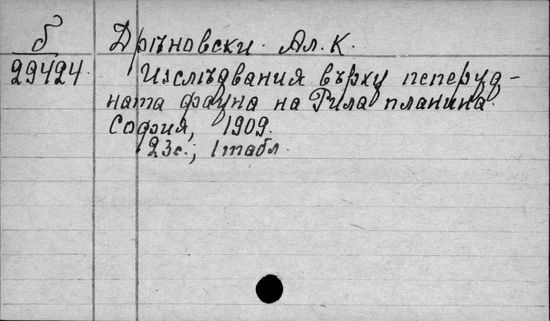 б Дрѣновски Ал. К.
29424 Изслѣдвания върху пеперуд-
ната фауна на Рила планина.
София, 1909.
23с.; 1 табл.